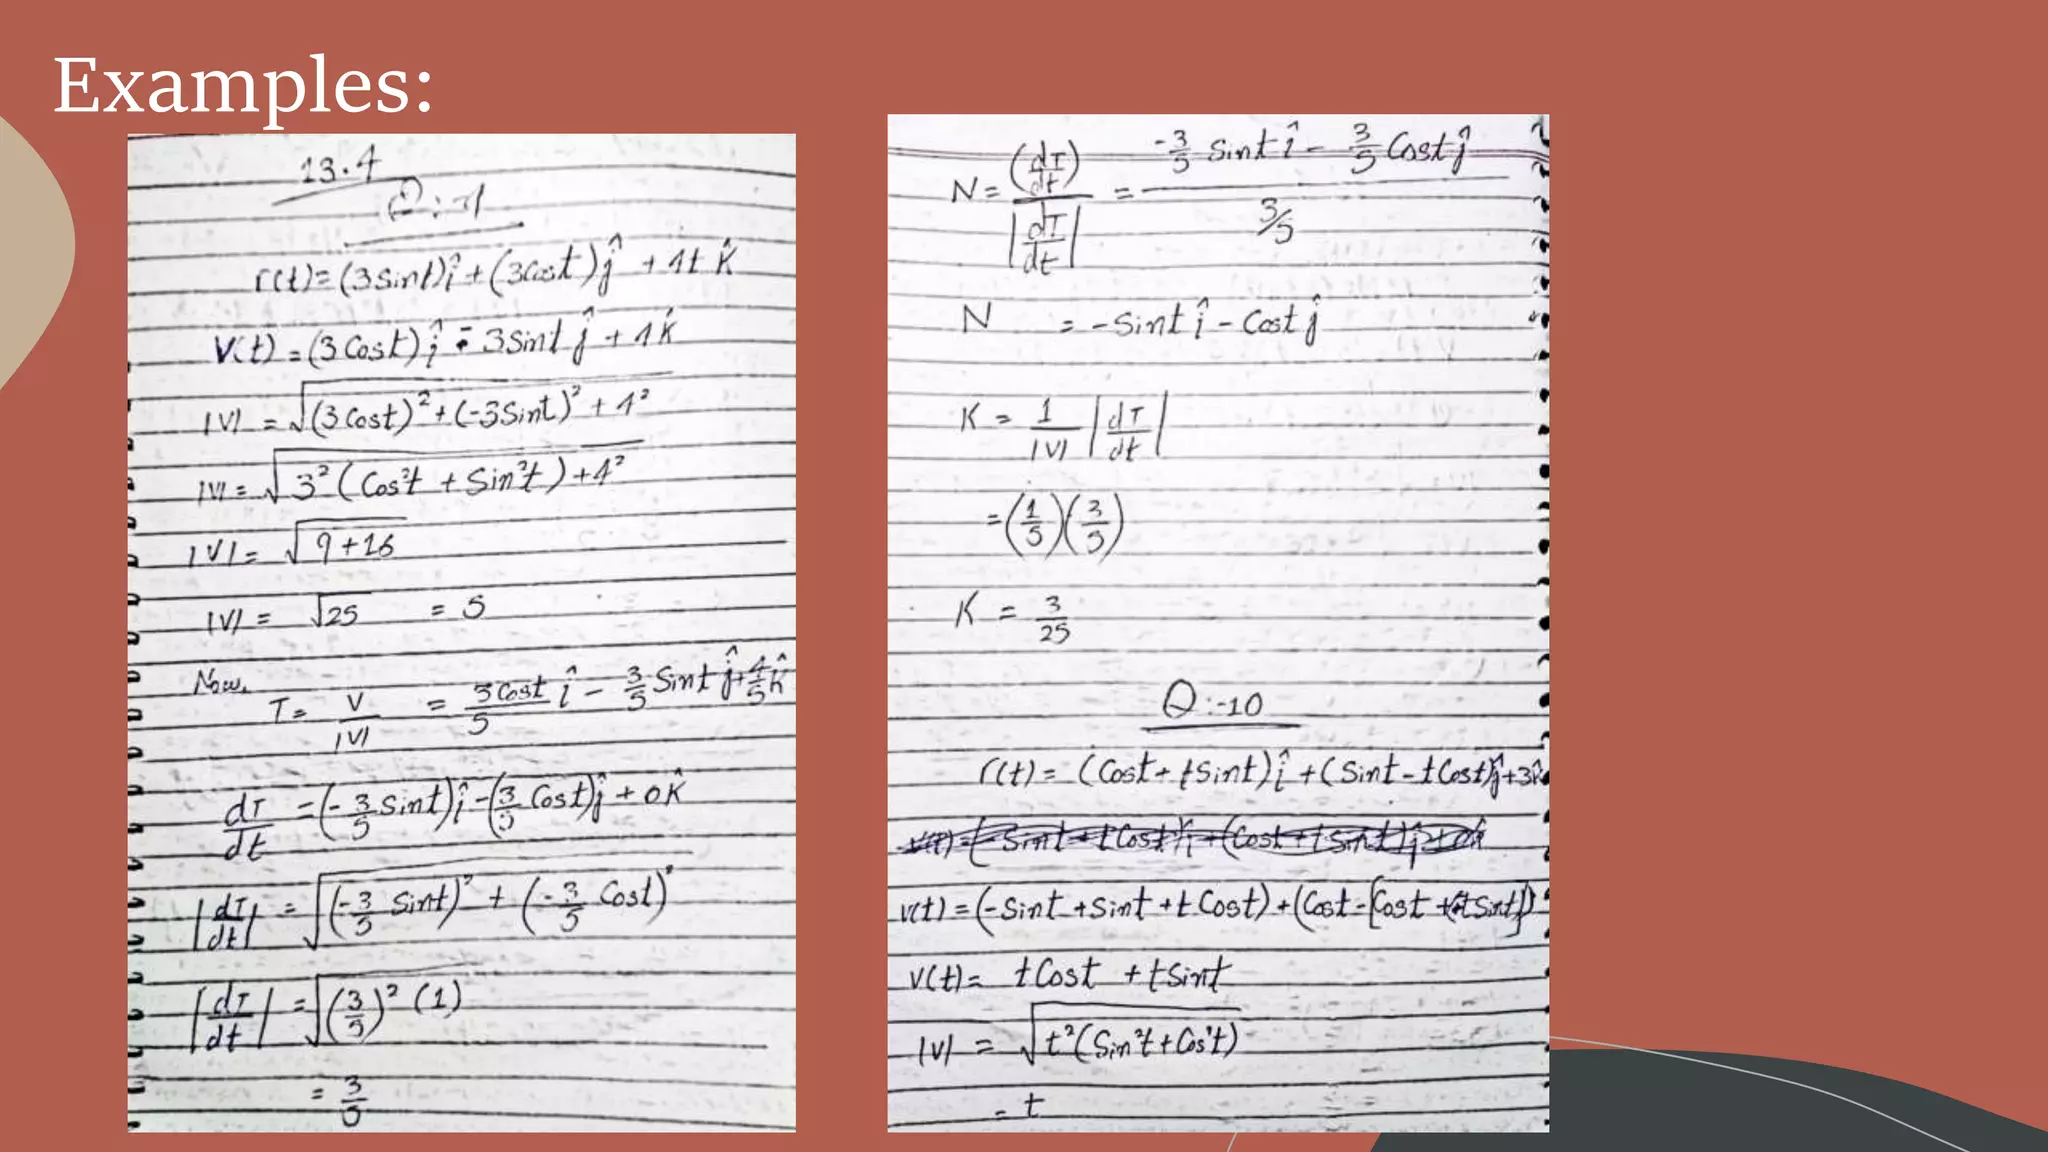 Examples:
13.4
r(t)=(3sint)î+(3cost)ĵ + 4t k̂
V(t) =(3 Cost)î - 3Sint ĵ + 4k̂
|V| = √(3 Cost)²+(-3Sint)² + 4²
|V| = √3² (Cos²t + Sin²t) +4²
|V| = √9+16
|V| = √25 = 5
Now,
T = V/|V| = 3Cost/5 î - 3/5 Sint ĵ + 4/5 k̂
dT/dt = (-3/5 Sint)î -(3/5 Cost)ĵ + 0k̂
|dT/dt| = √(-3/5 Sint)² + (-3/5 Cost)²
|dT/dt| = √(3/5)² (1)
= 3/5
N = (dT/dt)/|dT/dt| = -3/5 Sint î - 3/5 Cost ĵ / 3/5
N = -Sint î - Cost ĵ
K = 1/|V| |dT/dt|
=(1/5)(3/5)
K = 3/25
Q:-10
r(t) = (Cost + tSint)î +(Sint - tCost)ĵ+3k̂
v(t) = (-Sint +Sint +t Cost)+(Cost-[Cost +(-tSint)])
V(t)= tCost + tSint
|V| = √t²(Sin²t+Cos²t)
= t